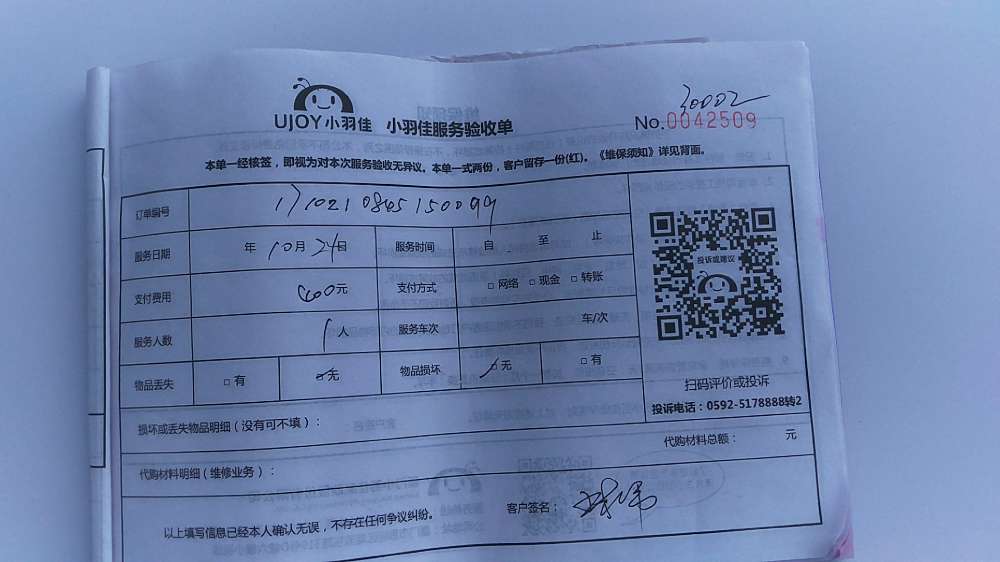 30002
UJOY小羽佳 小羽佳服务验收单 No.0042509
本单一经核签，即视为对本次服务验收无异议。本单一式两份，客户留存一份(红)。《维保须知》详见背面。
订单编号 1710210845150099
服务日期 年 10月 24日 服务时间 自 至 止
投诉或建议
支付费用 400元 支付方式 □ 网络 □ 现金 □ 转账
服务人数 1 人 服务车次 车/次
物品丢失 □ 有 □ 无 物品损坏 □ 无 □ 有
扫码评价或投诉
投诉电话：0592-5178888转2
损坏或丢失物品明细（没有可不填）：
代购材料总额： 元
代购材料明细（维修业务）：
以上填写信息已经本人确认无误，不存在任何争议纠纷。 客户签名：